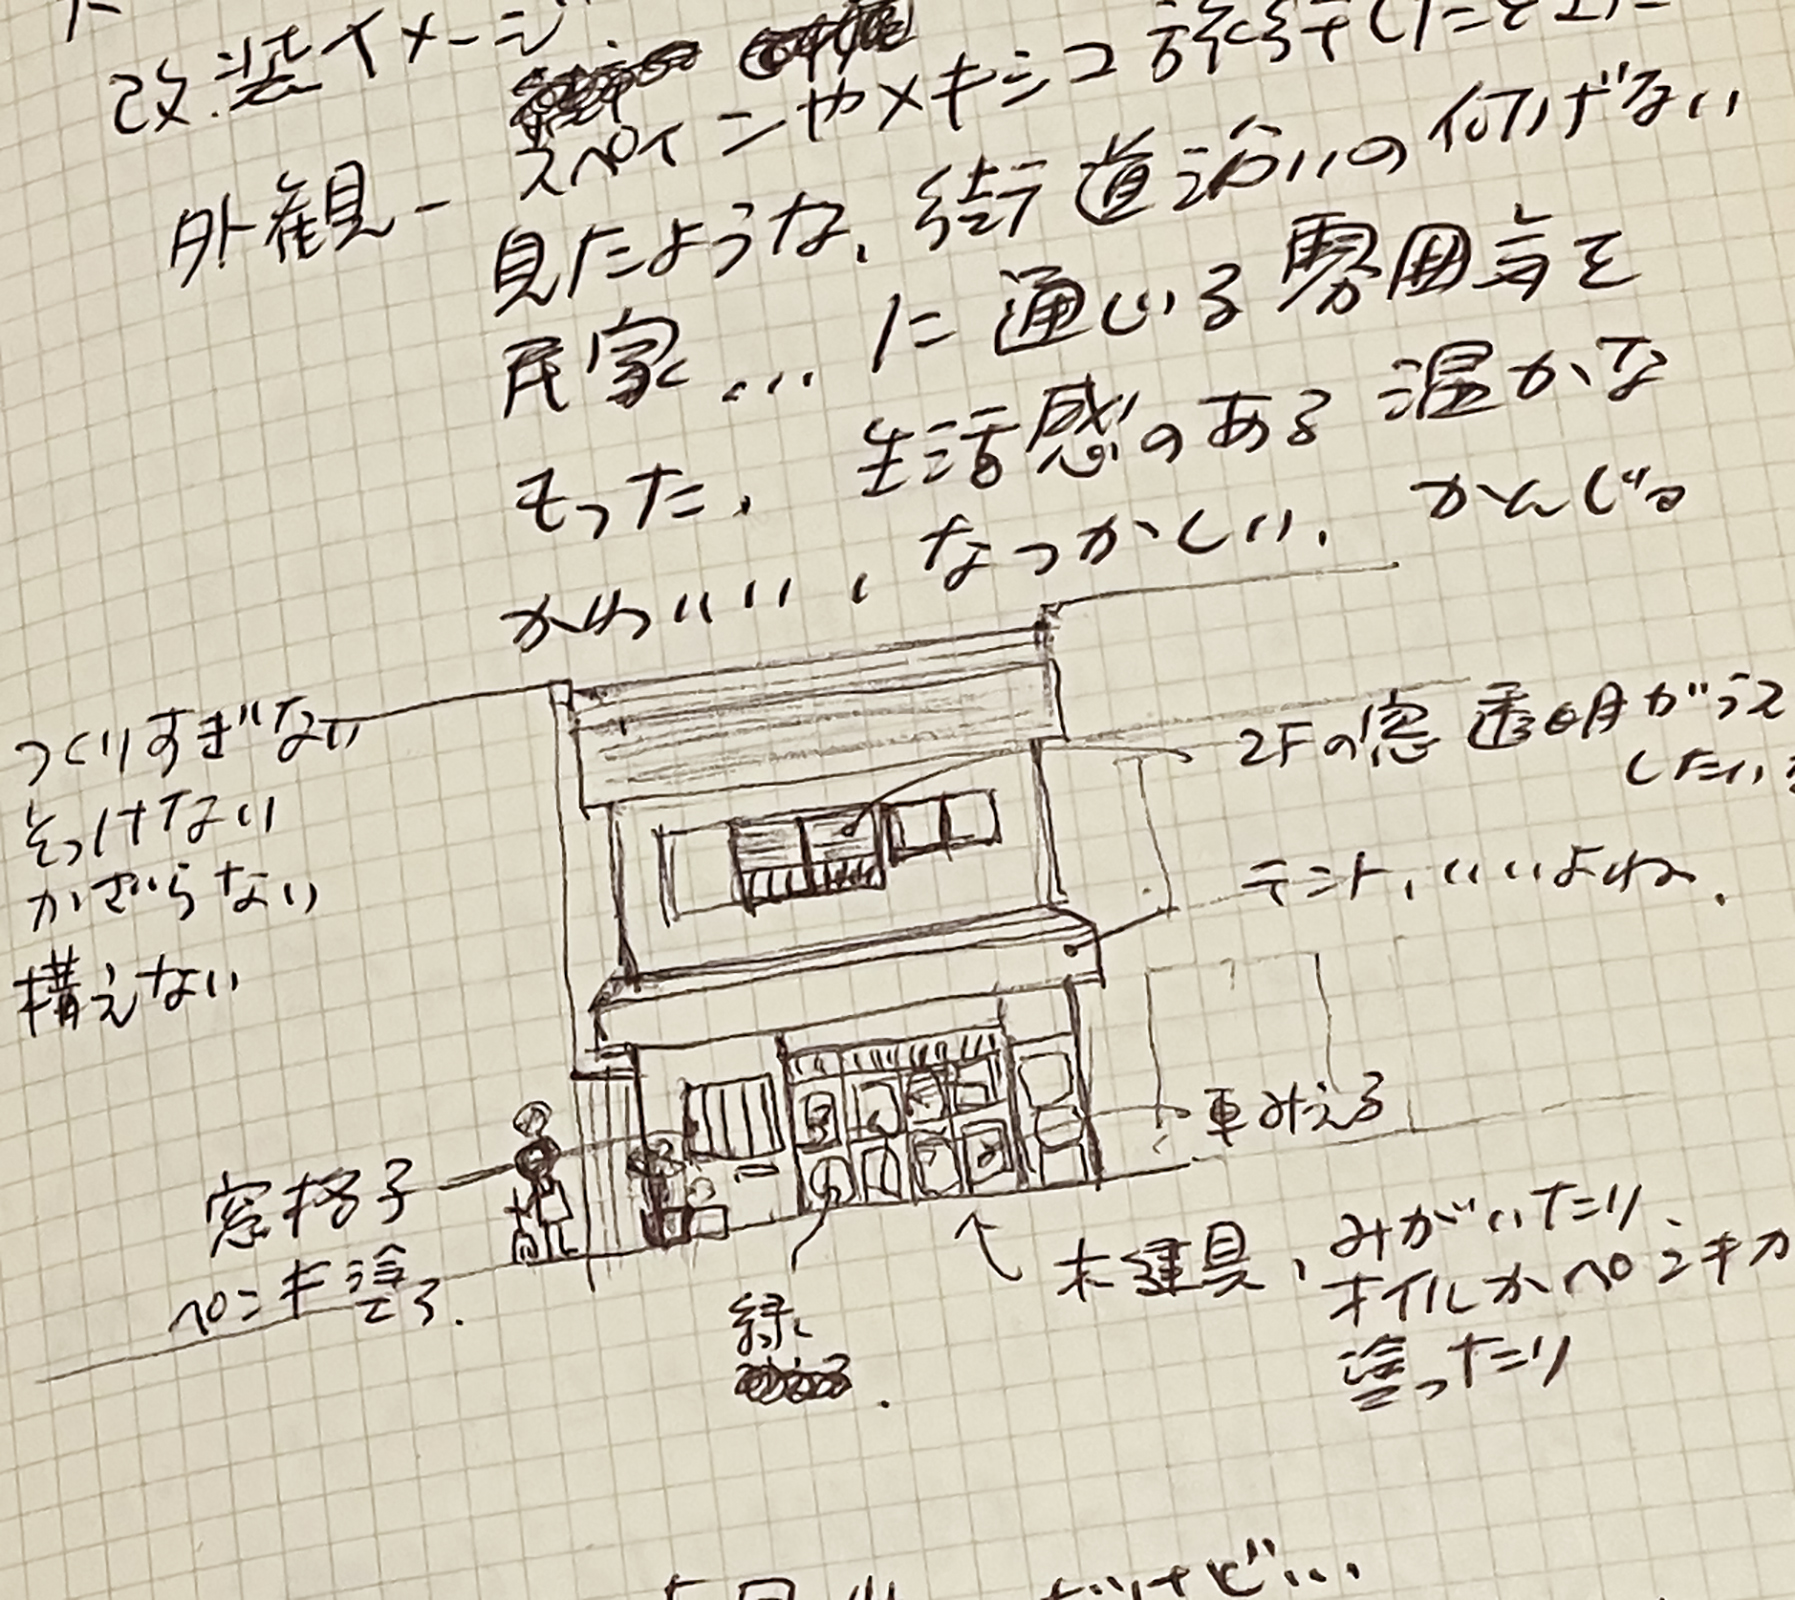 改装イメージ
外観 - スペインやメキシコ旅行したときに
見たような、街道沿いの何げない
民家... に通じる雰囲気を
もった、生活感のある温かな
かわいい、なつかしい、かんじる
つくりすぎない
そっけない
かざらない
構えない
2Fの窓 透明ガラス
したい
テント、いいよね.
車みえる
窓格子
ペンキ塗る.
緑
木建具、みがいたり
オイルかペンキか
塗ったり